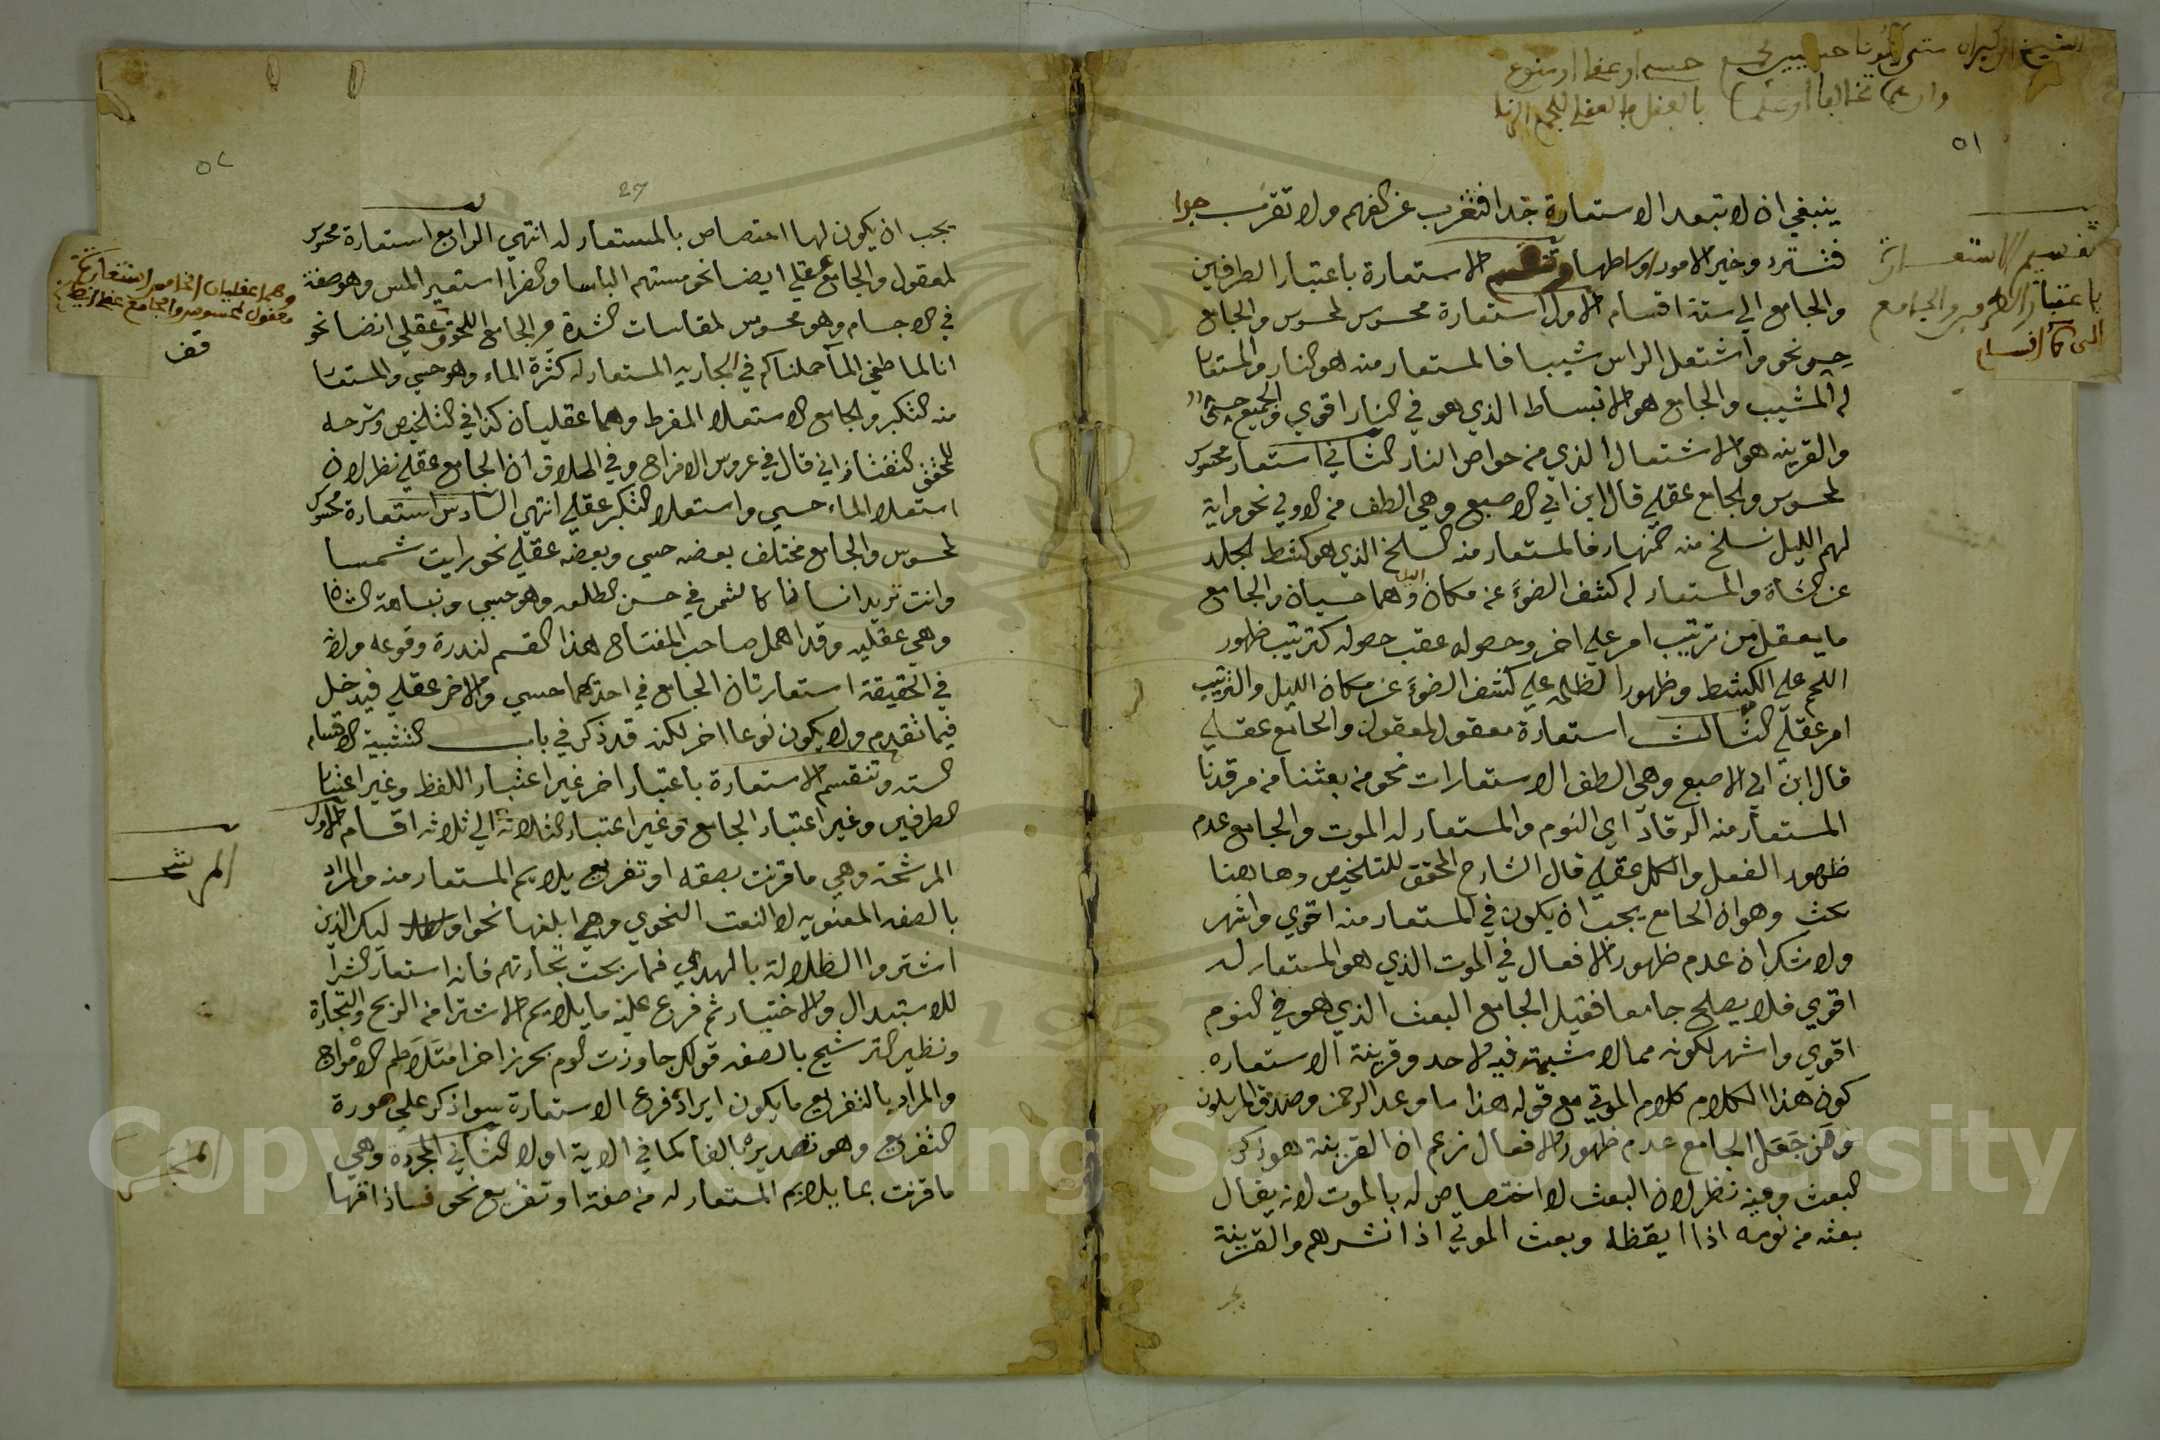 ٥١
ينبغي ان لا تبعد الاستعارة جدا فتغرب عن الفهم ولا تقرب جدا
فتسترد وخير الامور اوساطها وتنقسم الاستعارة باعتبار الطرفين
والجامع الي ستة اقسام الاول استعارة محسوس لمحسوس والجامع
حسي نحو واشتعل الراس شيبا فالمستعار منه هو النار والمستعار
له الشيب والجامع هو الانبساط الذي هو في النار اقوي والجميع حسي
والقرينه هو الاشتعال الذي من خواص النار الثاني استعار محسوس
لمحسوس والجامع عقلي قال ابن ابي الاصبع وهي الطف من الاولي نحو واية
لهم الليل نسلخ منه النهار فالمستعار منه السلخ الذي هو كشط الجلد
عن الشاة والمستعار له كشف الضوء عن مكان الليل وهما حسيان والجامع
ما يعقل من ترتيب امر علي اخر وحصوله عقب حصوله كترتيب ظهور
اللحم علي الكشط وظهور الظلمه علي كشف الضوء عن مكان الليل والترتيب
امر عقلي الثالث استعارة معقول لمعقول والجامع عقلي
قال ابن ابي الاصبع وهي الطف الاستعارات نحو من بعثنا من مرقدنا
المستعار منه الرقاد اي النوم والمستعار له الموت والجامع عدم
ظهور الفعل والكل عقلي قال الشارح المحقق للتلخيص وهاهنا
بحث وهو ان الجامع يجب ان يكون في المستعار منه اقوي واشهر
ولا شك ان عدم ظهور الافعال في الموت الذي هو المستعار له
اقوي فلا يصلح جامعا فقيل الجامع البعث الذي هو في النوم
اقوي واشهر لكونه مما لا شبهة فيه لاحد وقرينة الاستعاره
كون هذا الكلام كلام الموتي مع قوله هذا ما وعد الرحمن وصدق المرسلون
ومن جعل الجامع عدم ظهور الافعال زعم ان القرينة هو ذكر
البعث وفيه نظر لان البعث لا اختصاص له بالموت لانه يقال
بعثه من نومه اذا ايقظه وبعث الموتي اذا انشرهم والقرينة
يجب
تقسيم الاستعارة
باعتبار الطرفين والجامع
الى ٦ اقسام
٥٢
27
يجب ان يكون لها اختصاص بالمستعار له انتهي الرابع استعارة محسوس
لمعقول والجامع عقلي ايضا نحو مستهم الباسا والضرا استعير المس وهو صفة
في الاجسام وهو محسوس لمقاسات الشدة والجامع اللحوق عقلي ايضا نحو
انا لما طغي الما حملناكم في الجاريه المستعار له كثرة الماء وهو حسي والمستعار
منه التكبر والجامع الاستعلا المفرط وهما عقليان كذا في التلخيص وشرحه
للمحقق التفتازاني قال في عروس الافراح وفي اطلاق ان الجامع عقلي نظر لان
استعلا الماء حسي واستعلا التكبر عقلي انتهي السادس استعارة محسوس
لمحسوس والجامع مختلف بعضه حسي وبعضه عقلي نحو رايت شمسا
وانت تريد انسانا كالشمس في حسن الطلعه وهو حسي ونباهة الشان
وهي عقليه وقد اهمل صاحب المفتاح هذا القسم لندرة وقوعه ولانه
في الحقيقة استعارتان الجامع في احدهما حسي والاخر عقلي فيدخل
فيما تقدم ولا يكون نوعا اخر لكنه قد ذكر في باب التشبيه الاقسام
السته وتنقسم الاستعارة باعتبار اخر غير اعتبار اللفظ وغير اعتبار
الطرفين وغير اعتبار الجامع وغير اعتبار الثلاثة الي ثلاثه اقسام الاول
المرشحة وهي ما قرنت بصفه او تفريع يلايم المستعار منه والمراد
بالصفه المعنويه لا النعت النحوي وهي ابلغها نحو اوليك الذين
اشتروا الظلالة بالهدي فما ربحت تجارتهم فانه استعار الشرا
للاستبدال والاختيار ثم فرع عليه ما يلايم الاشترا من الربح والتجارة
ونظير الترشيح بالصفه قولك جاوزت اليوم بحرا زاخرا متلاطم الامواج
والمراد بالتفريع ما يكون ايراده فرع الاستعارة سوا ذكر علي صورة
التفريع وهو تصديره بالفا كما في الاية او لا الثاني المجردة وهي
ما قرنت بما يلايم المستعار له من صفة او تفريع نحو فاذاقها
وهما عقليان الخامس استعارة
معقول لمحسوس والجامع عقلي ايضا
قف
المرشحة
المجردة
Copyright © King Saud University
1957